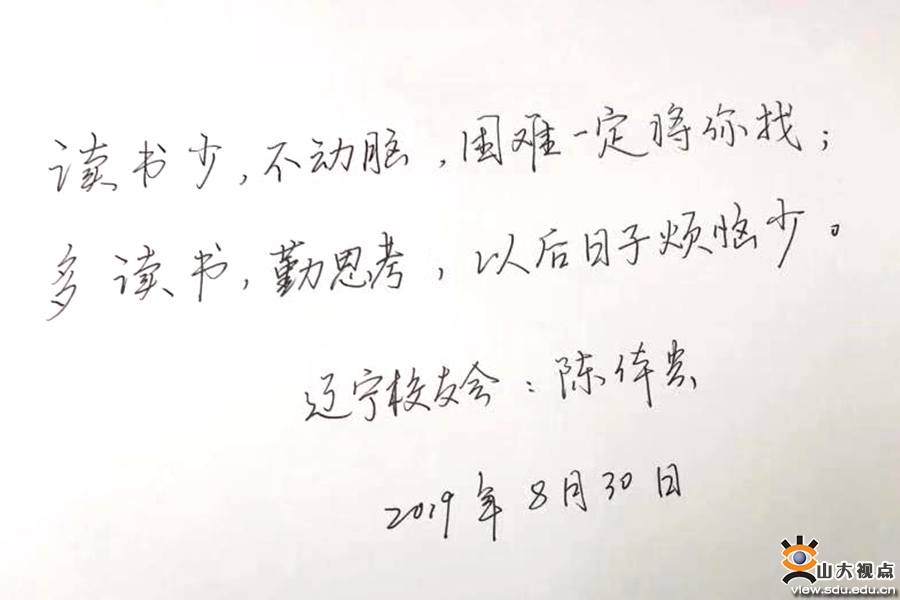 读书少,不动脑,困难一定将你找;
多读书,勤思考,以后日子烦恼少。
辽宁校友会:陈
2019年8月30日
山大视点
view.sdu.edu.cn